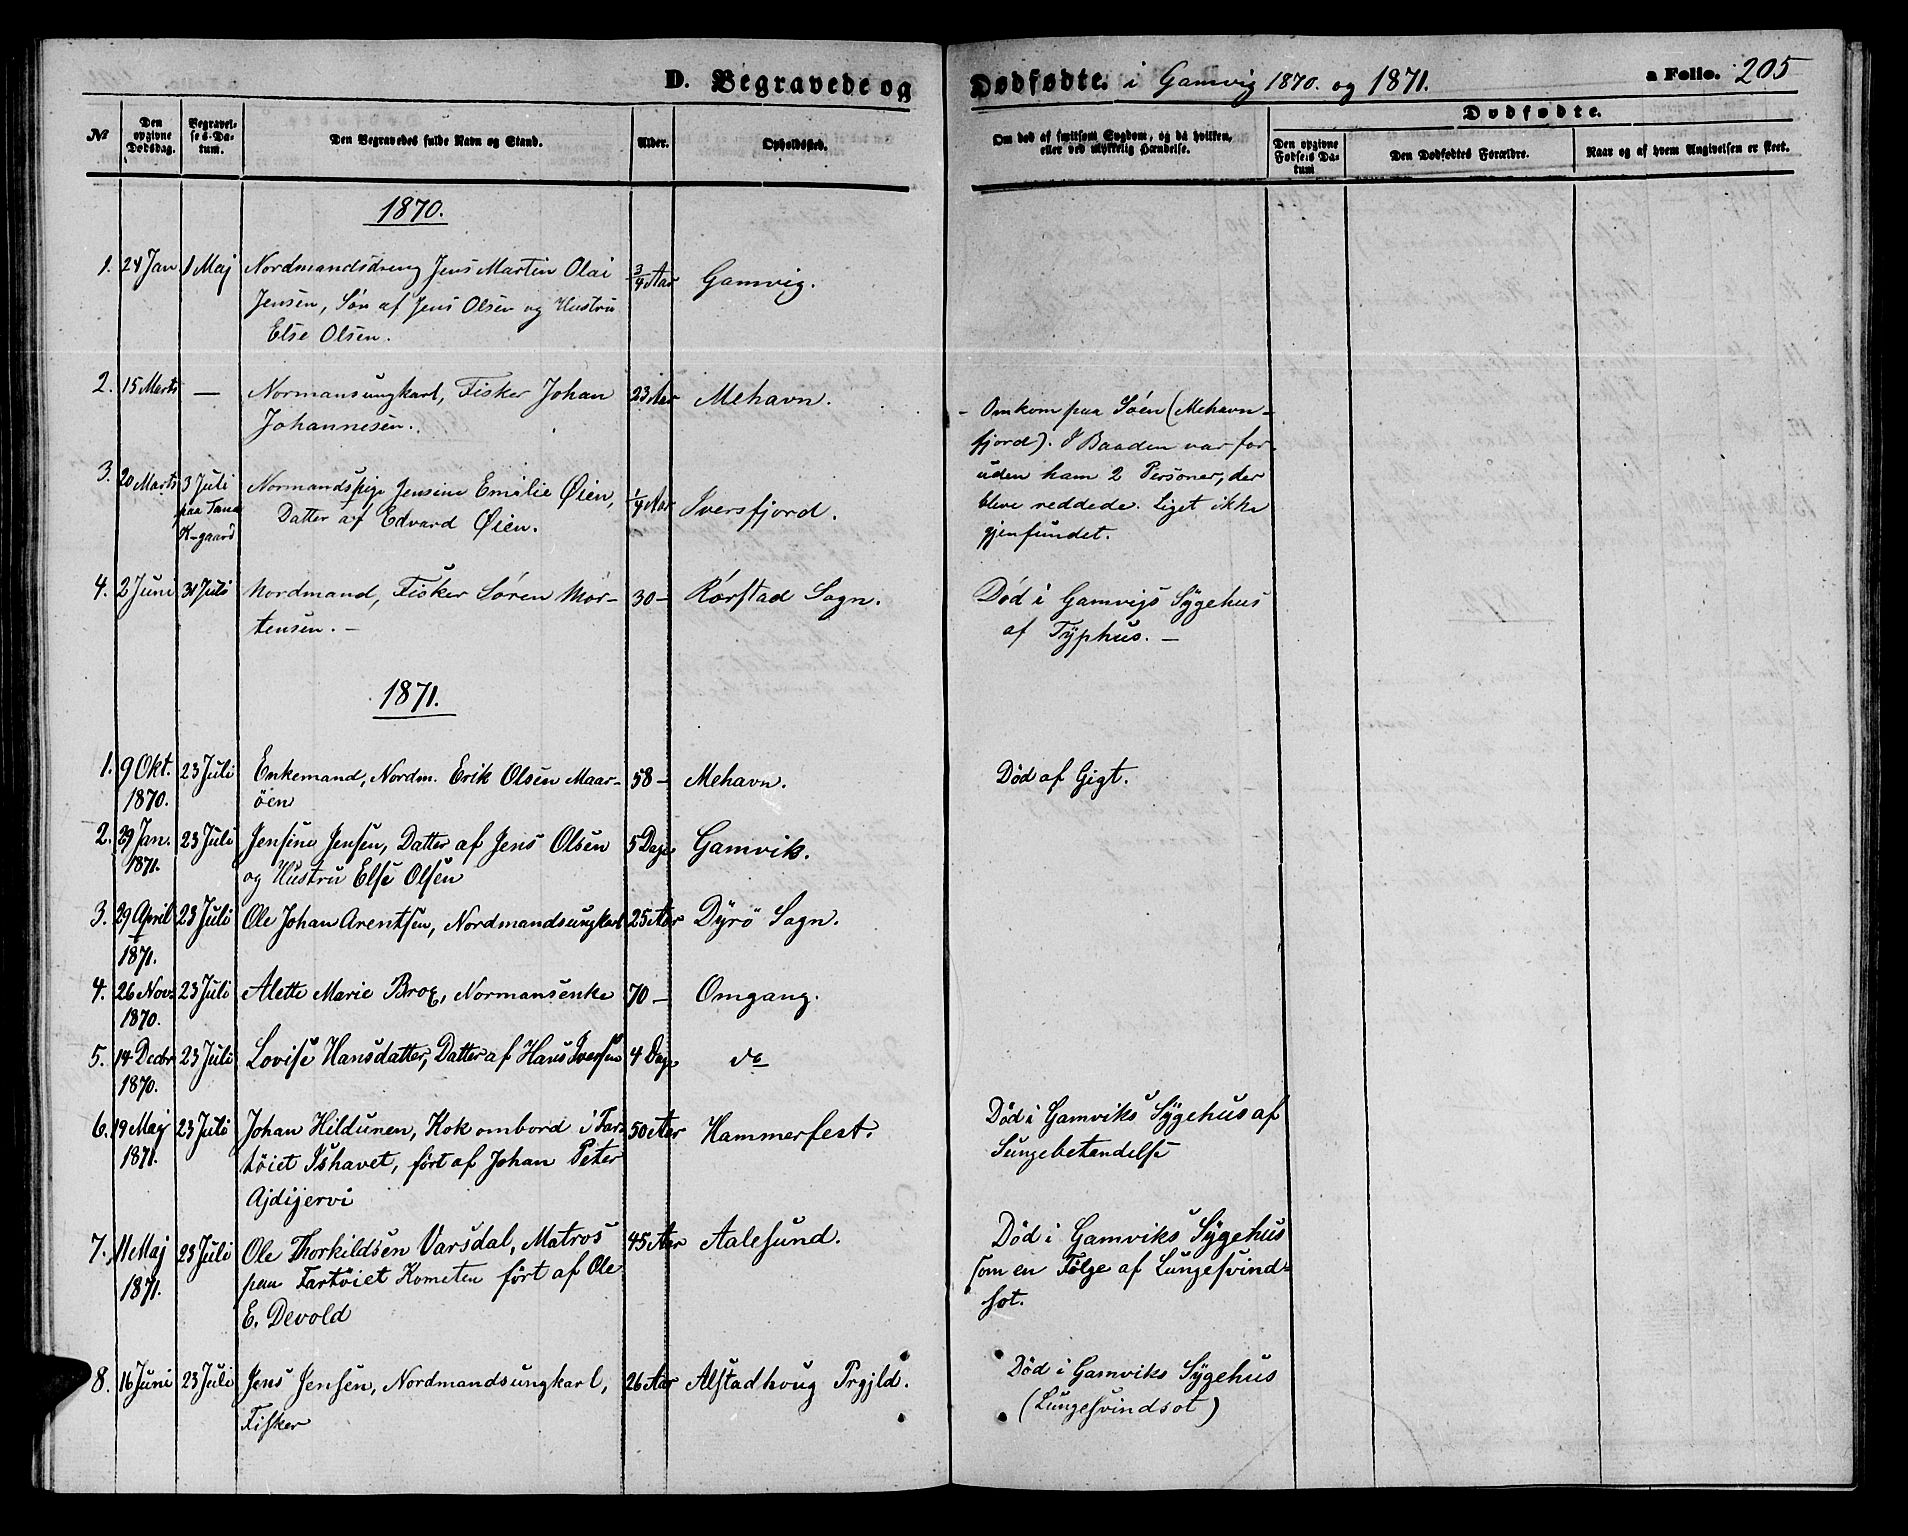 D. Begravede og Dødfødte. i Gamvig 1870. og 1871. a Folio. 205
№
Den opgivne Dødsdag.
Begravelses-Datum.
Den Begravedes fulde Navn og Stand.
Alder.
Opholdssted.
Om død af smitsom Sygdom, og da hvilken, eller ved ulykkelig Hændelse.
Dødfødte.
Den opgivne Fødsels Datum
Den Dødfødtes Forældre.
Naar og af hvem Angivelsen er skeet.
1870.
1. 24 Jan 1 Maj Nordmandsdreng Jens Martin Olai 3/4 Aar Gamvig.
Jensen, Søn af Jens Olsen og Hustru
Else Olsen.
2. 15 Marts — Normansungkarl, Fisker Johan 23 Aar Mehavn. - Omkom paa Søen (Mehavn-
Johannesen. fjord). I Baaden var for-
uden ham 2 Personer, der
bleve reddede. Liget ikke
gjenfundet.
3. 20 Marts 3 Juli Normandspige Jensine Emilie Øien, 1/4 Aar Iversfjord.
paa Tana Datter af Edvard Øien.
K-gaard
4. 2 Juni 31 Juli Nordmand, Fisker Søren Mor- 30 — Rørstad Sogn. Død i Gamvigs Sygehus
tensen. — af Typhus. —
1871.
1. 9 Okt. 23 Juli Enkemand, Nordm. Erik Olsen Maar- 58 — Mehavn. Død af Gigt.
1870. øen
2. 29 Jan. 23 Juli Jensine Jensen, Datter af Jens Olsen 5 Dage Gamvik.
1871. og Hustru Else Olsen
3. 29 April 23 Juli Ole Johan Arentsen, Nordmandsungkarl 25 Aar Dyrø Sogn.
1871.
4. 26 Novr 23 Juli Alette Marie Brox, Normansenke 70 — Omgang.
1870.
5. 14 Decbr 23 Juli Lovise Hansdatter, Datter af Hans Iversen 4 Dage do
1870.
6. 19 Maj 23 Juli Johan Hildunen, Kok ombord i Far- 50 Aar Hammerfest. Død i Gamviks Sygehus af
1871. tøiet Ishavet, ført af Johan Peter Lungebetændelse
Ajdijervi
7. 11 Maj 23 Juli Ole Thorkildsen Varsdal, Matros 45 Aar Aalesund. Død i Gamviks Sygehus
1871. paa Fartøiet Kometen ført af Ole som en Følge af Lungesvind-
E. Devold sot.
8. 16 Juni 23 Juli Jens Jensen, Nordmandsungkarl, 26 Aar Alstadhoug Prgjld. Død i Gamviks Sygehus
Fisker (Lungesvindsot)